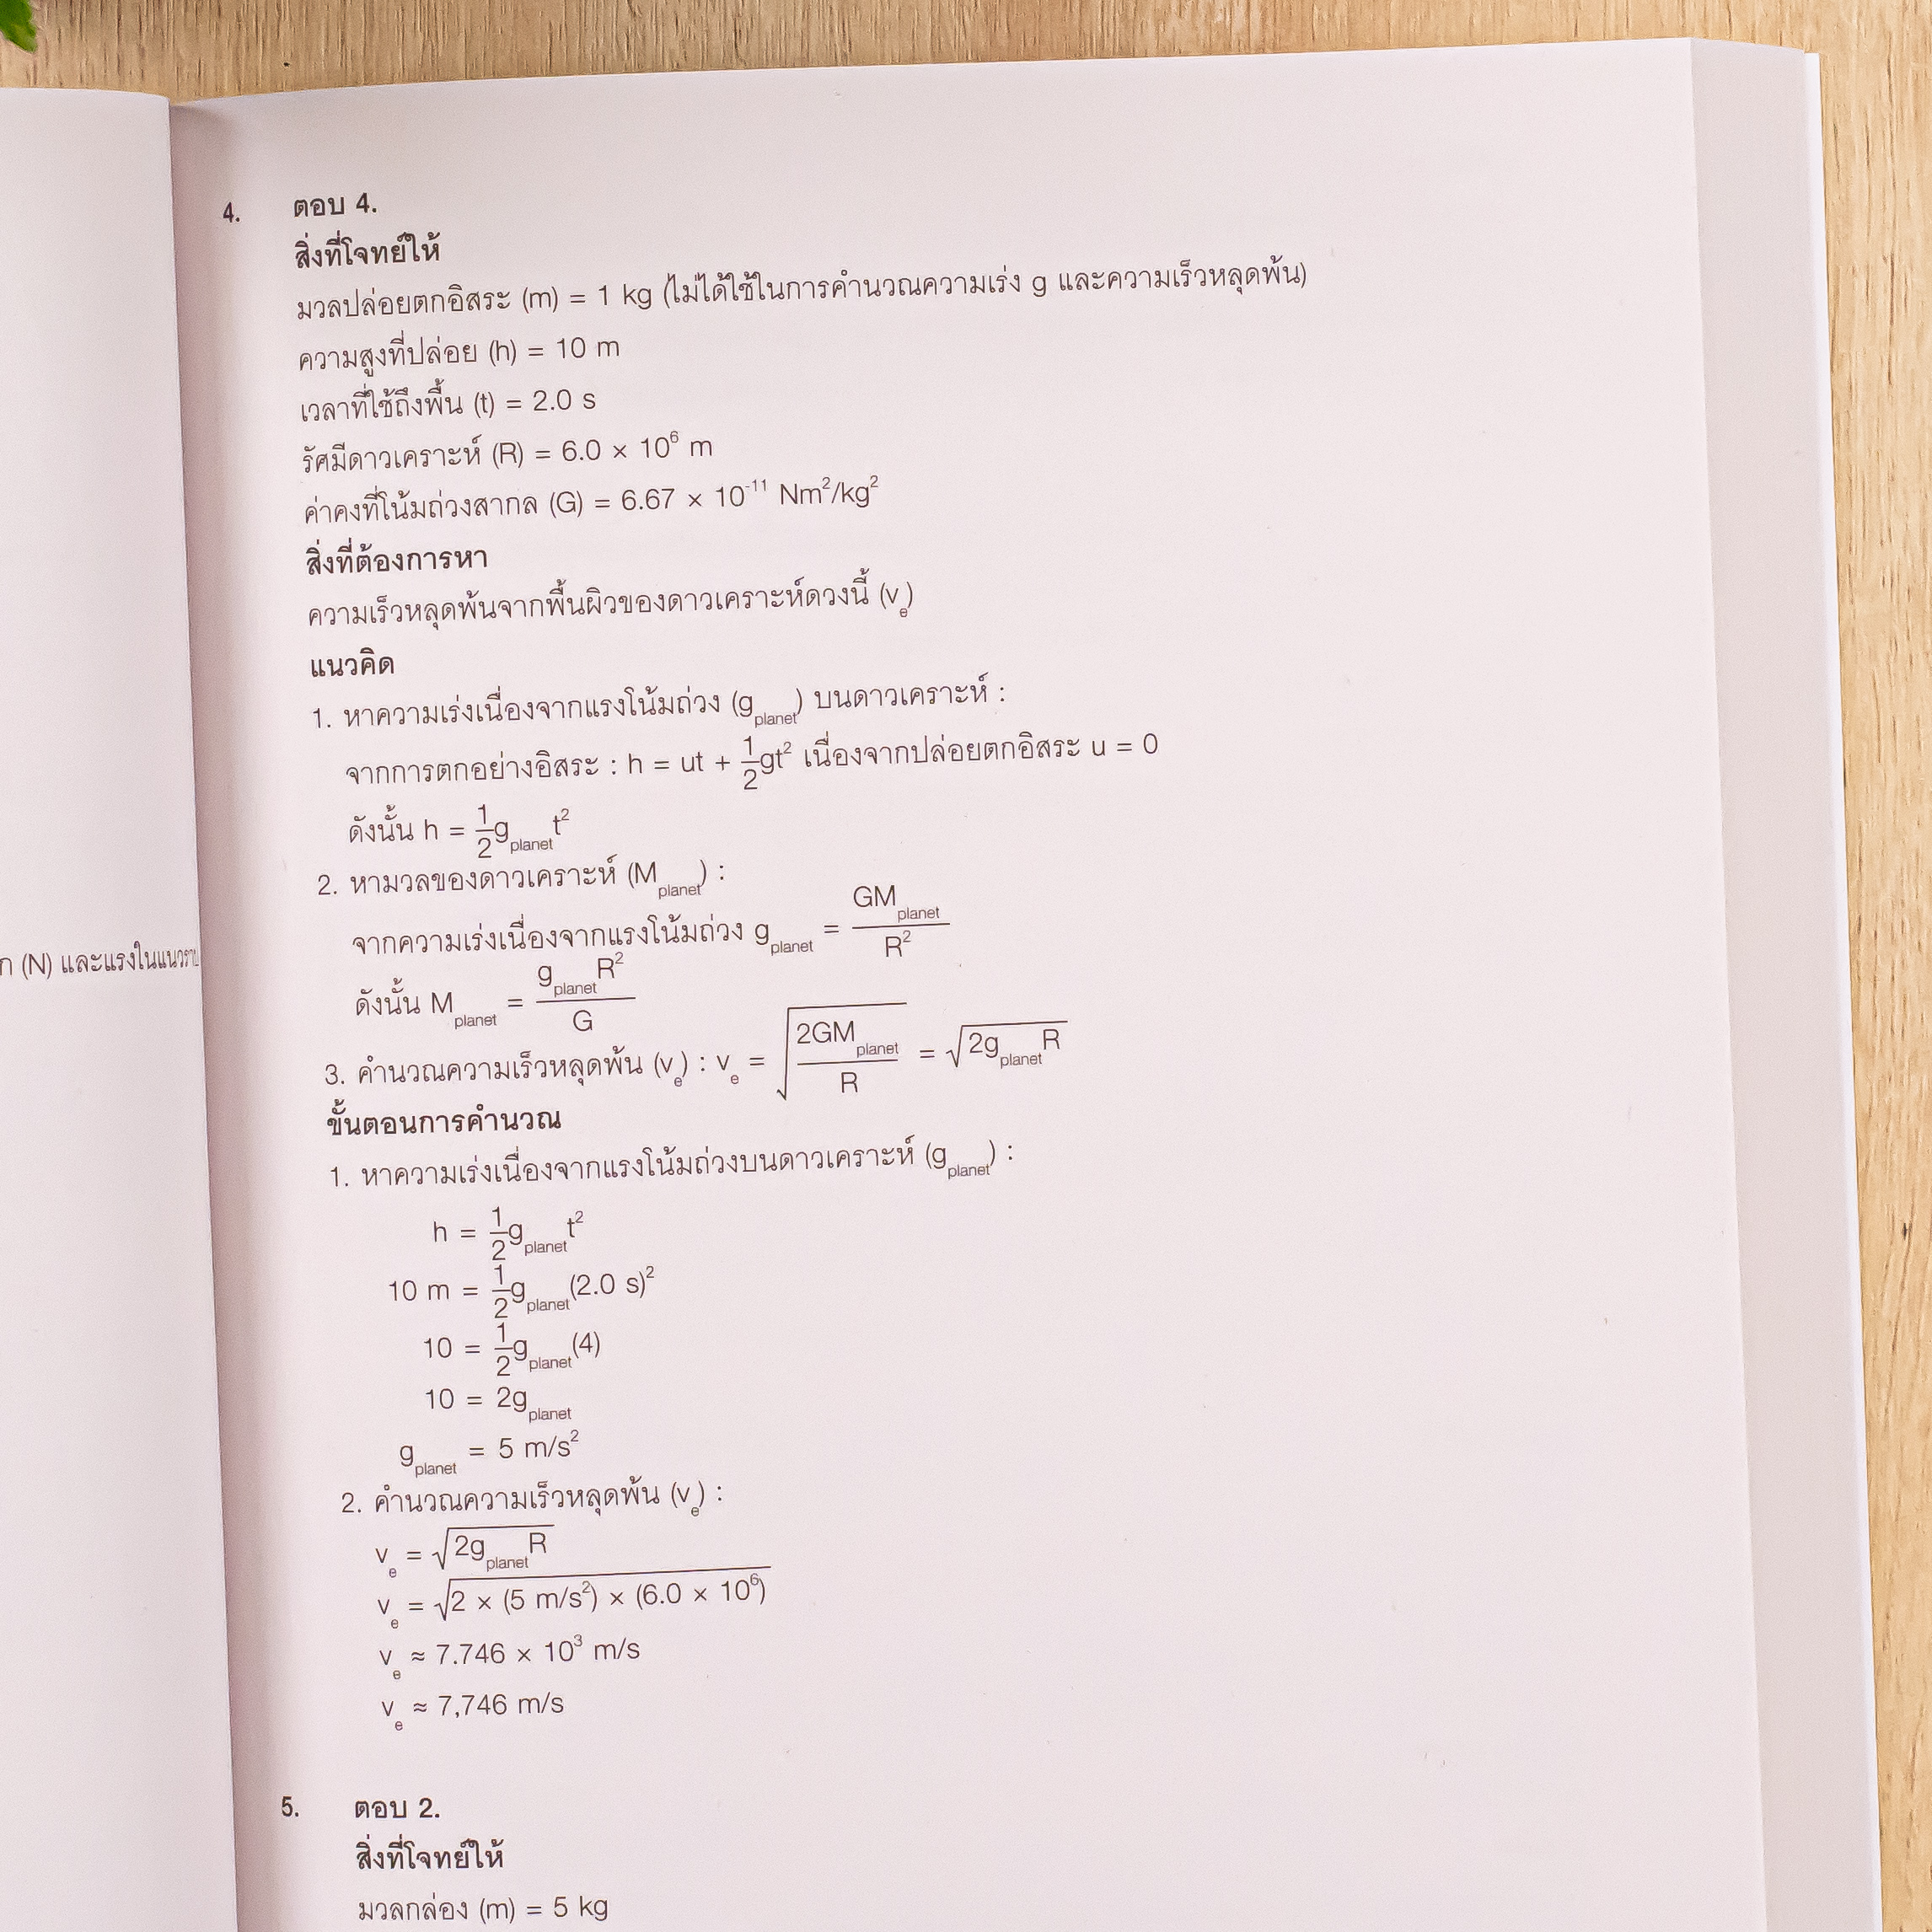 ก (N) และแรงในแนวราบ
4. ตอบ 4.
สิ่งที่โจทย์ให้
มวลปล่อยตกอิสระ (m) = 1 kg (ไม่ได้ใช้ในการคำนวณความเร่ง g และความเร็วหลุดพ้น)
ความสูงที่ปล่อย (h) = 10 m
เวลาที่ใช้ถึงพื้น (t) = 2.0 s
รัศมีดาวเคราะห์ (R) = 6.0 × 10⁶ m
ค่าคงที่โน้มถ่วงสากล (G) = 6.67 × 10⁻¹¹ Nm²/kg²
สิ่งที่ต้องการหา
ความเร็วหลุดพ้นจากพื้นผิวของดาวเคราะห์ดวงนี้ (v_e)
แนวคิด
1. หาความเร่งเนื่องจากแรงโน้มถ่วง (g_planet) บนดาวเคราะห์ :
จากการตกอย่างอิสระ : h = ut + 1/2 gt² เนื่องจากปล่อยตกอิสระ u = 0
ดังนั้น h = 1/2 g_planet t²
2. หามวลของดาวเคราะห์ (M_planet) :
จากความเร่งเนื่องจากแรงโน้มถ่วง g_planet = GM_planet / R²
ดังนั้น M_planet = g_planet R² / G
3. คำนวณความเร็วหลุดพ้น (v_e) : v_e = √(2GM_planet / R) = √(2g_planet R)
ขั้นตอนการคำนวณ
1. หาความเร่งเนื่องจากแรงโน้มถ่วงบนดาวเคราะห์ (g_planet) :
h = 1/2 g_planet t²
10 m = 1/2 g_planet (2.0 s)²
10 = 1/2 g_planet (4)
10 = 2g_planet
g_planet = 5 m/s²
2. คำนวณความเร็วหลุดพ้น (v_e) :
v_e = √(2g_planet R)
v_e = √(2 × (5 m/s²) × (6.0 × 10⁶))
v_e ≈ 7.746 × 10³ m/s
v_e ≈ 7,746 m/s
5. ตอบ 2.
สิ่งที่โจทย์ให้
มวลกล่อง (m) = 5 kg